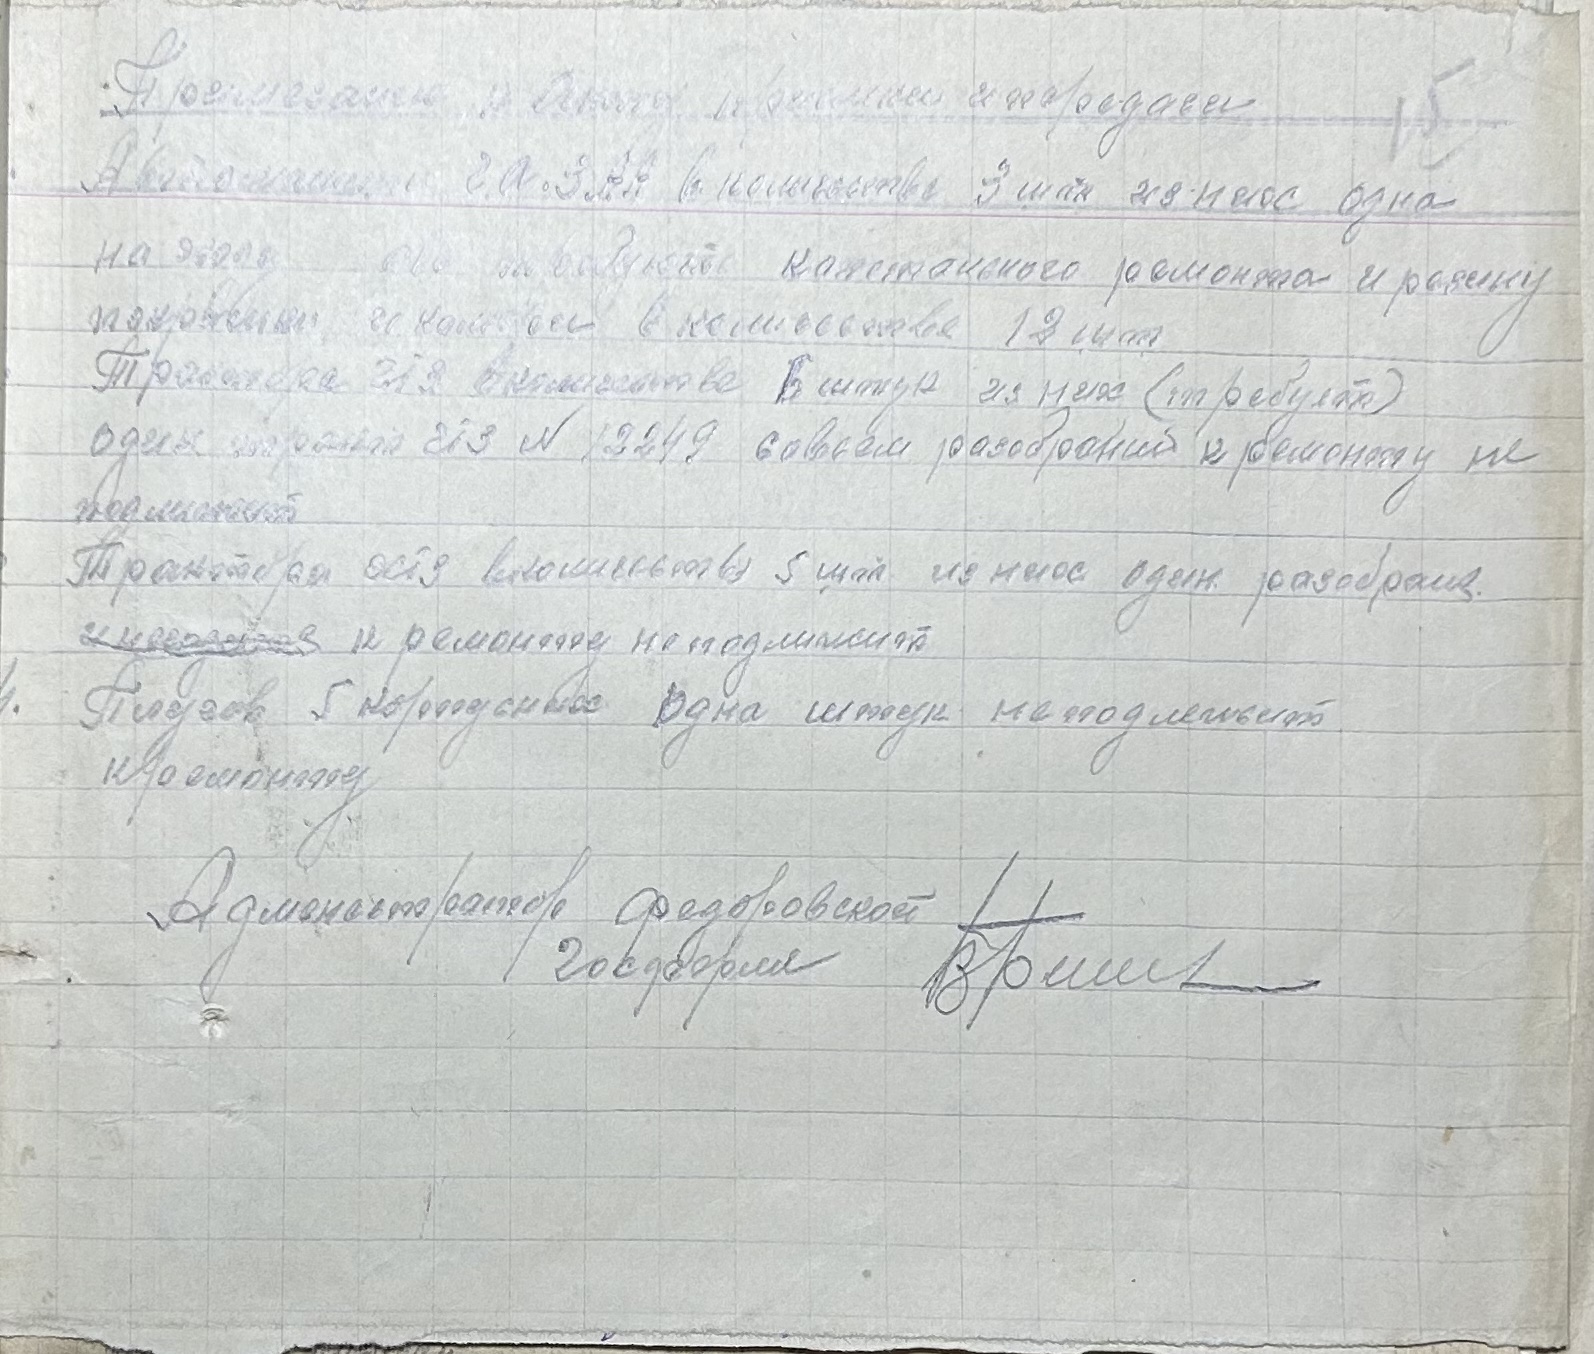 Примечание к Акту приёмки и передаси 15
Автомашины ГАЗ АА в количестве 3 шт из них одна
на ходу требуют капитального ремонта и резину
покрышки и камеры в количестве 12 шт
Трактора ЧТЗ в количестве 5 штук из них (требует)
один трактр ЧТЗ № 12249 совсем разобраний к ремонту не
подлижит
Трактора ХТЗ в количестве 5 шт из них один разобрани
к ремонту не подлижит
4. Плугов 5 корпусных Одна штук не подлежит
к ремонту
Адменистратор Федоровской
Госдворля